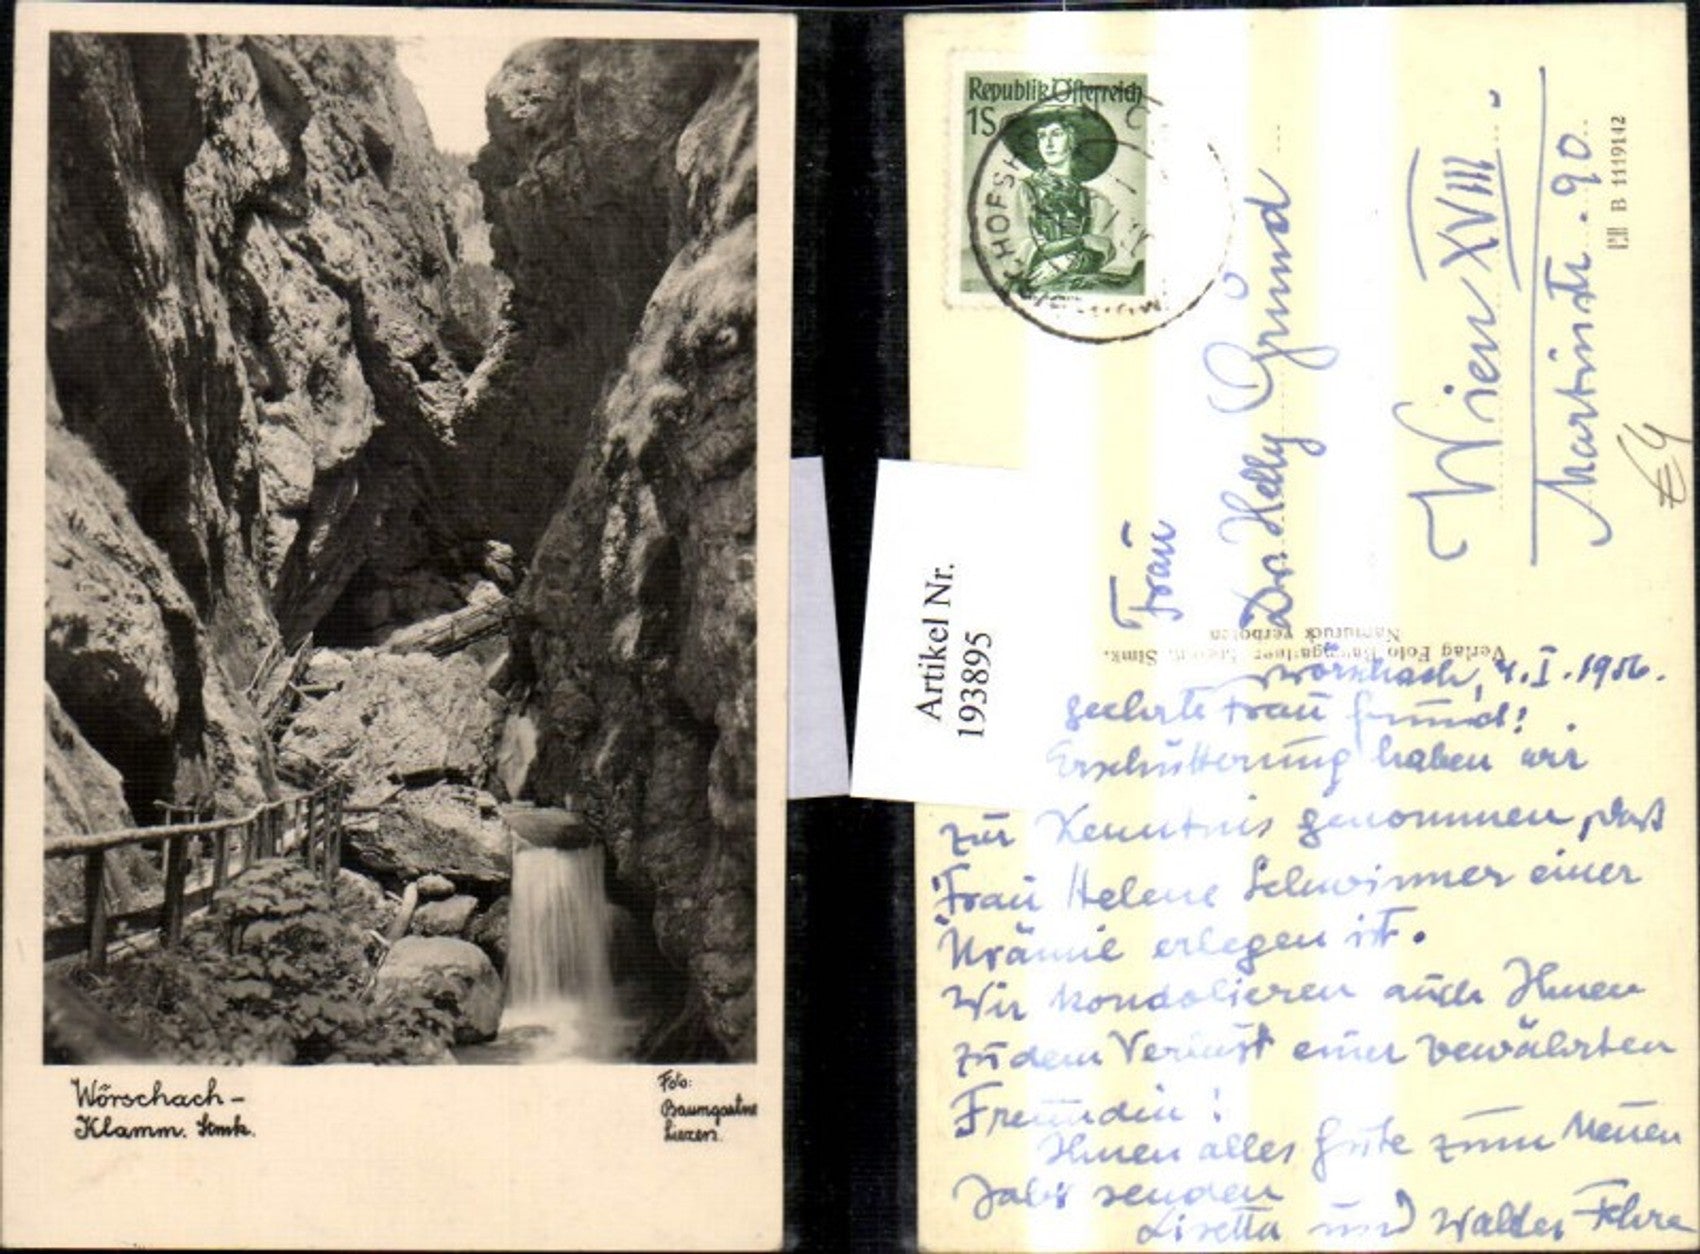 Wörschach-
Klamm. Stmk.
Foto:
Baumgartne
Liezen.
Artikel Nr.
193895
Republik Österreich
1S
HOFSH
Frau
Dr. Helly Gründ
Wien XVIII
Martinstr. 90
B 1119142
Verlag Foto Baumgartner Stmk.
Nachdruck verboten
Wörschach, 4.I.1956.
geehrte Frau Gründ!
Erschütterung haben wir
zur Kenntnis genommen, daß
Frau Helene Schwinner einer
Urämie erlegen ist.
Wir kondolieren auch Ihnen
zu dem Verlust einer bewährten
Freundin!
Ihnen alles Gute zum Neuen
Jahr senden
Lisetta und Walter